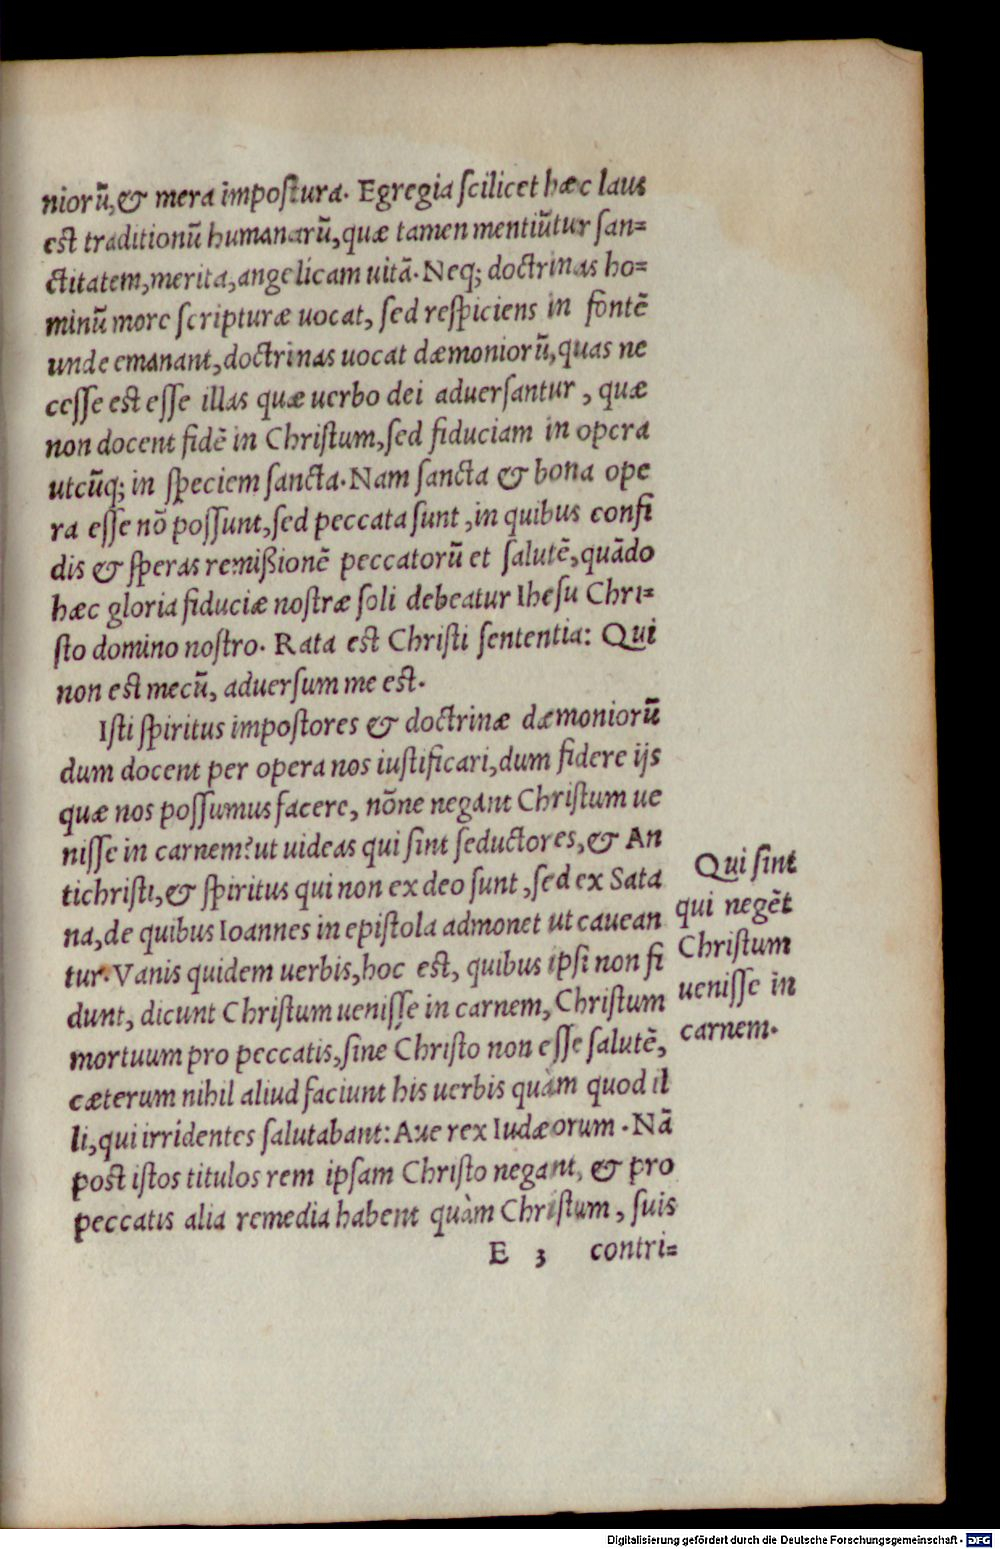 niorũ, & mera impostura. Egregia scilicet hæc laus
est traditionũ humanarũ, quæ tamen mentiũtur san=
ctitatem, merita, angelicam uitã. Neq; doctrinas ho=
minũ more scripturæ uocat, sed respiciens in fontẽ
unde emanant, doctrinas uocat dæmoniorũ, quas ne
cesse est esse illas quæ uerbo dei aduersantur, quæ
non docent fidẽ in Christum, sed fiduciam in opera
utcũq; in speciem sancta. Nam sancta & bona ope
ra esse nõ possunt, sed peccata sunt, in quibus confi
dis & speras remißionẽ peccatorũ et salutẽ, quãdo
hæc gloria fiduciæ nostræ soli debeatur Ihesu Chri=
sto domino nostro. Rata est Christi sententia: Qui
non est mecũ, aduersum me est.
Isti spiritus impostores & doctrinæ dæmoniorũ
dum docent per opera nos iustificari, dum fidere ijs
quæ nos possumus facere, nõne negant Christum ue
nisse in carnem? ut uideas qui sint seductores, & An
tichristi, & spiritus qui non ex deo sunt, sed ex Sata
na, de quibus Ioannes in epistola admonet ut cauean
tur. Vanis quidem uerbis, hoc est, quibus ipsi non fi
dunt, dicunt Christum uenisse in carnem, Christum
mortuum pro peccatis, sine Christo non esse salutẽ,
cæterum nihil aliud faciunt his uerbis quàm quod il
li, qui irridentes salutabant: Aue rex Iudæorum. Nã
post istos titulos rem ipsam Christo negant, & pro
peccatis alia remedia habent quàm Christum, suis
E 3 contri=
Qui sint
qui negẽt
Christum
uenisse in
carnem.
Digitalisierung gefördert durch die Deutsche Forschungsgemeinschaft - DFG